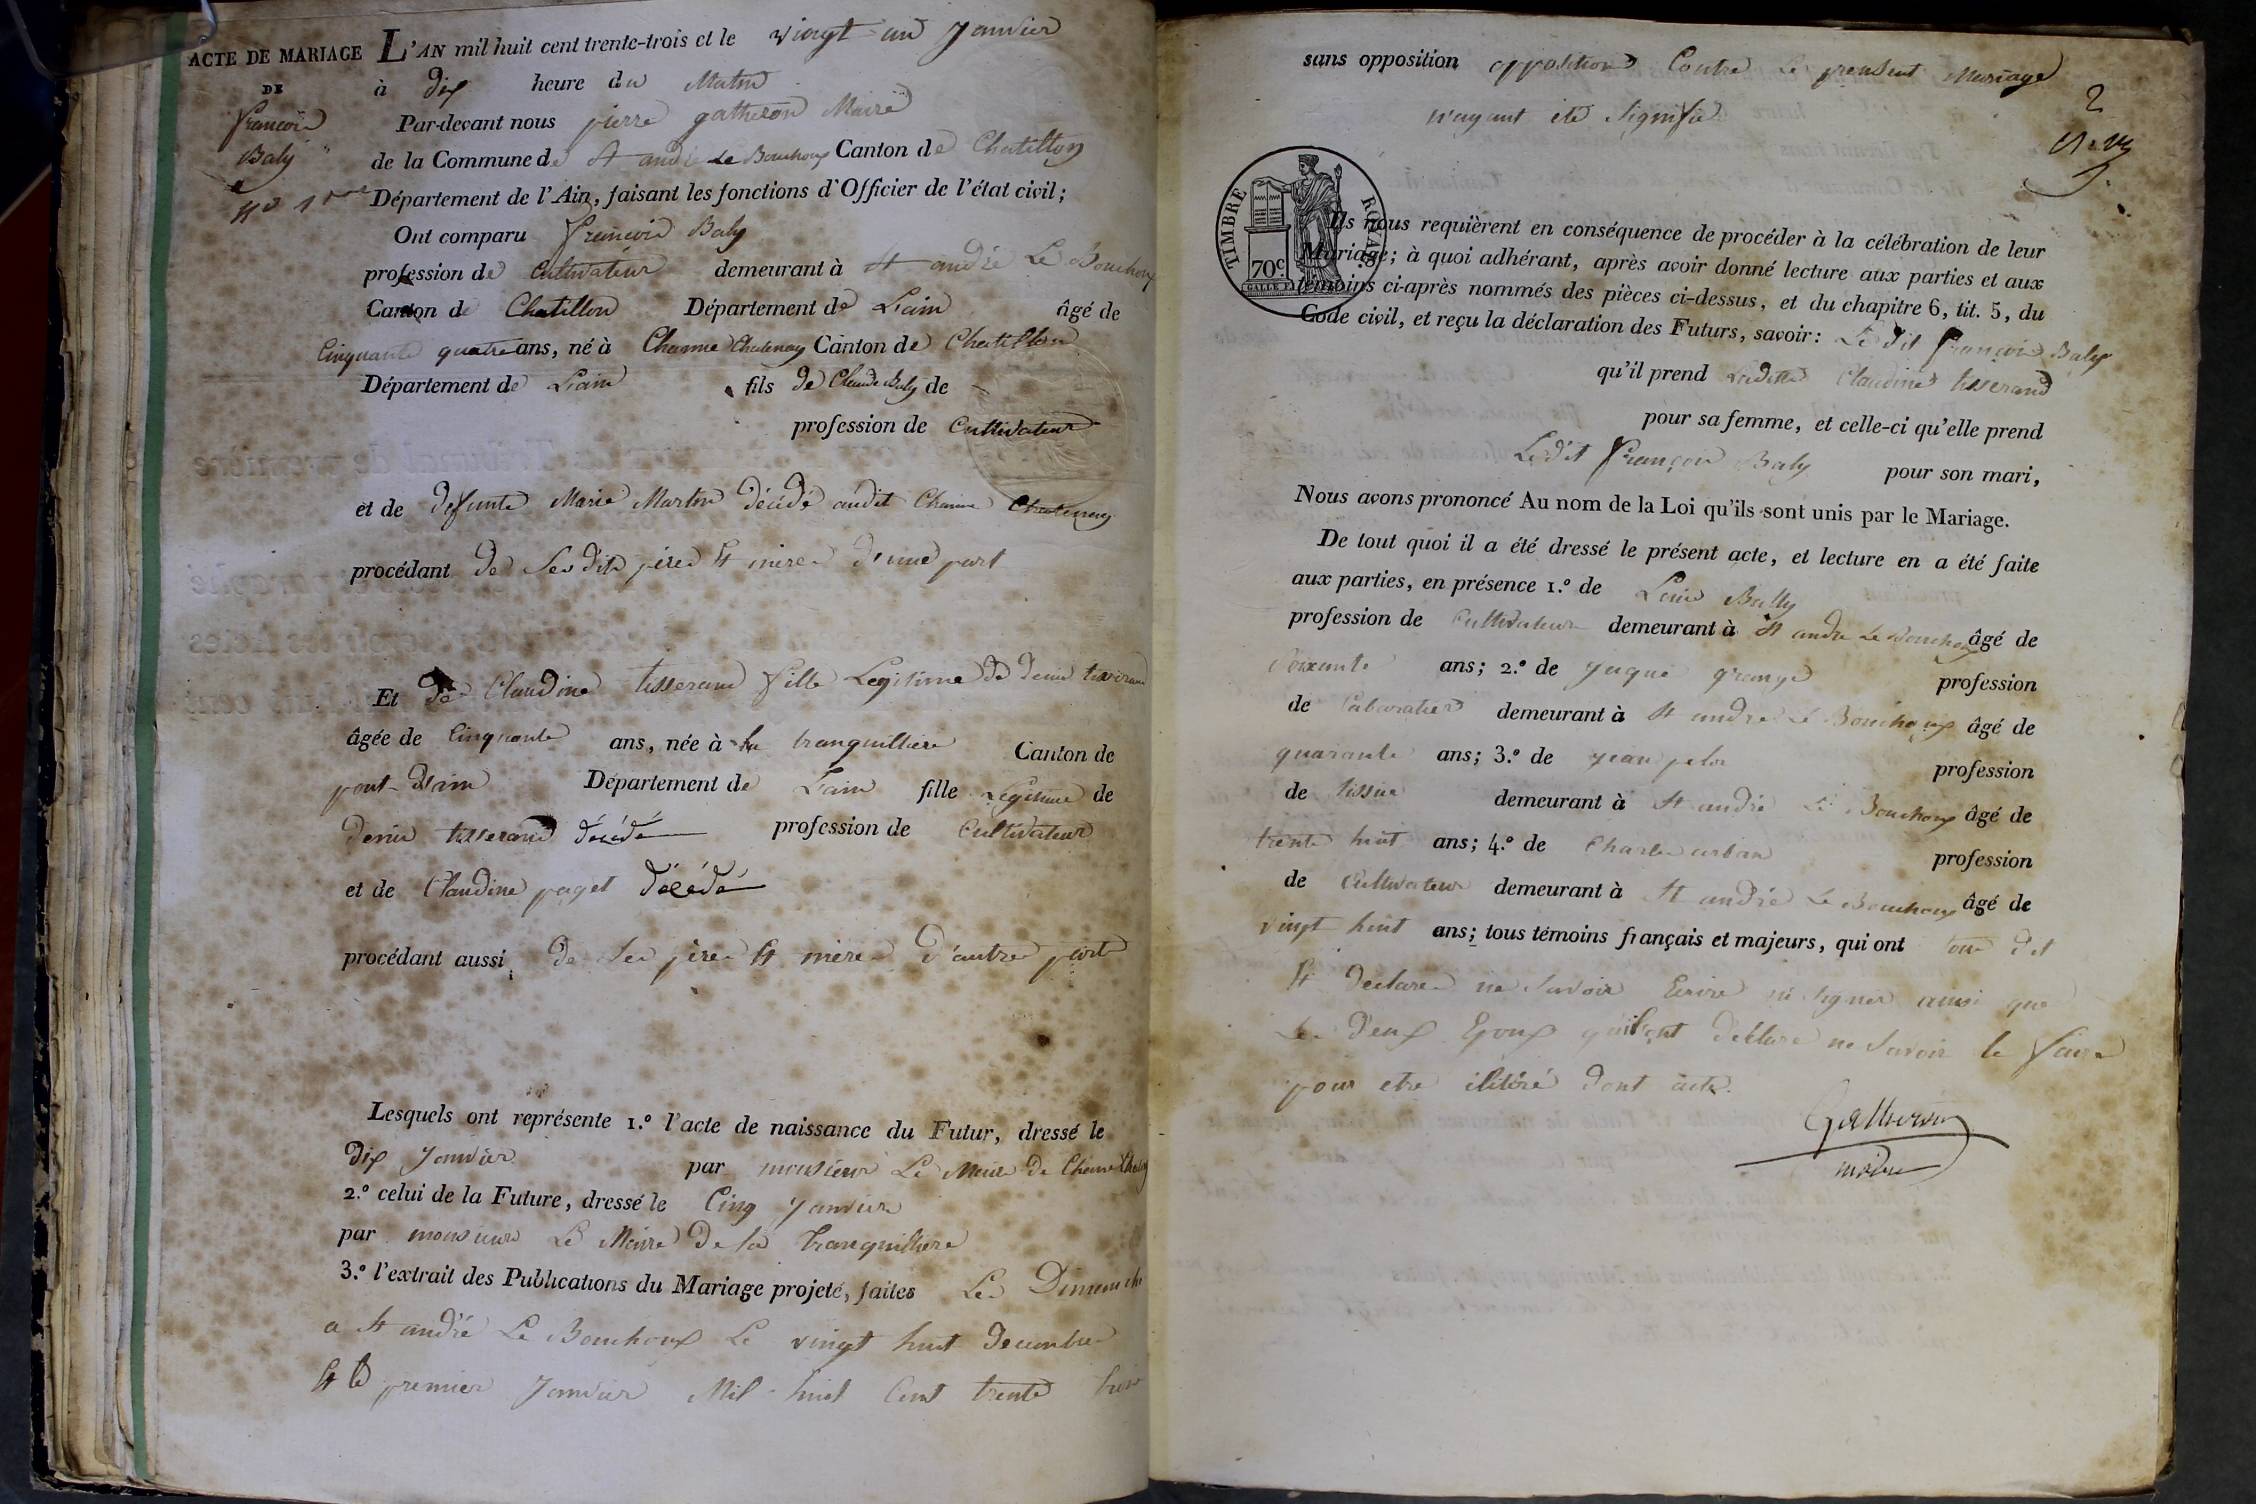 ACTE DE MARIAGE
DE
françois
Baly
N° 1er
L'AN mil huit cent trente-trois et le vingt un janvier
à dix heure du Matin
Par-devant nous pierre gatheron Maire
de la Commune de St andré Le Bouchoux Canton de Chatillon
Département de l'Ain, faisant les fonctions d'Officier de l'état civil;
Ont comparu françois Baly
profession de Cultivateur demeurant à St andré Le Bouchoux
Canton de Chatillon Département de Lain âgé de
Cinquante quatre ans, né à Channe Chatenay Canton de Chatillon
Département de Lain fils de Claude Baly de
profession de Cultivateur
et de defunte Marie Martin décédé audit Channe Chatenay
procédant de Ses dits père et mere d'une part
Et de Claudine tisserand fille Legitime de denis tisserand
âgée de Cinquante ans, née à la tranquilliere Canton de
pont Dain Département de Lain fille Legitime de
denis tisserand décédé profession de Cultivateur
et de Claudine paget décédé
procédant aussi de Ses père et mere d'autre part
Lesquels ont représente 1.° l'acte de naissance du Futur, dressé le
dix Janvier par monsieur Le Maire de Channe Chatenay
2.° celui de la Future, dressé le Cinq Janvier
par monsieur Le Maire De la tranquilliere
3.° l'extrait des Publications du Mariage projeté, faites Les Dimanche
a St andré Le Bouchoux Le vingt huit decembre
et le premier Janvier Mil huit Cent trente trois
2
sans opposition opposition Contre Le prensent Mariage
n'ayant été Signifié
TIMBRE ROYAL
70c
Ils nous requièrent en conséquence de procéder à la célébration de leur
Mariage; à quoi adhérant, après avoir donné lecture aux parties et aux
témoins ci-après nommés des pièces ci-dessus, et du chapitre 6, tit. 5, du
Code civil, et reçu la déclaration des Futurs, savoir: Le dit françois Baly
qu'il prend Laditte Claudine tisserand
pour sa femme, et celle-ci qu'elle prend
Ledit françois Baly pour son mari,
Nous avons prononcé Au nom de la Loi qu'ils sont unis par le Mariage.
De tout quoi il a été dressé le présent acte, et lecture en a été faite
aux parties, en présence 1.° de Louis Bally
profession de Cultivateur demeurant à St andré Le Bouchoux âgé de
Soixante ans; 2.° de Jaque grange profession
de Cabaratier demeurant à St andré Le Bouchoux âgé de
quarante ans; 3.° de jean profession
de tissie demeurant à St andré Le Bouchoux âgé de
trente huit ans; 4.° de Charle urban profession
de Cultivateur demeurant à St andré Le Bouchoux âgé de
vingt huit ans; tous témoins français et majeurs, qui ont tous dit
et declare ne Savoir Ecrire ni Signer ausi que
Les deux Epoux quils ont déclare ne Savoir le faire
pour etre ilitéré dont acte.
Gatheron
maire